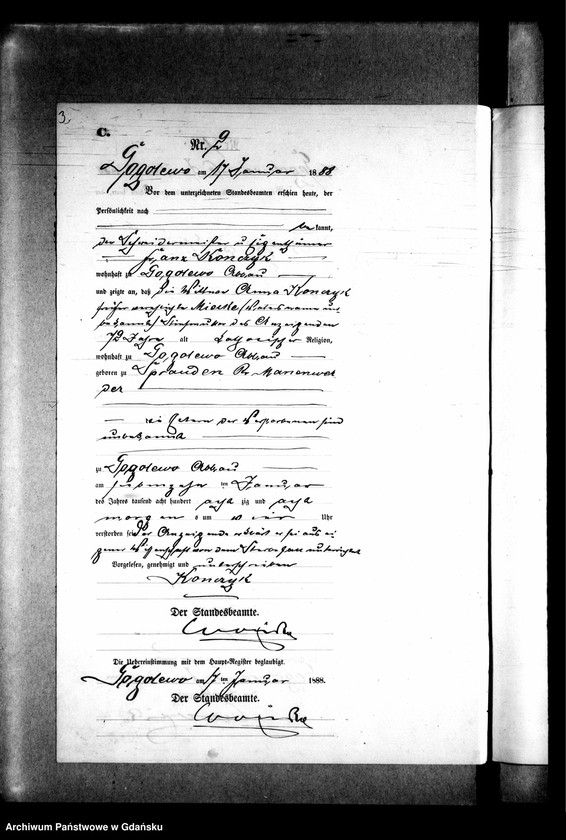 3.
C.
Nr. 2
Gogolewo am 17 Januar 1888
Vor dem unterzeichneten Standesbeamten erschien heute, der
Persönlichkeit nach
be kannt,
der Schneidermeister u Eigenthümer
Franz Konczyk
wohnhaft zu Gogolewo Abbau
und zeigte an, daß die Wittwe Anna Konczyk
früher
bekannt) Stiefmutter des Anzeigenden
72 Jahre alt katholischer Religion,
wohnhaft zu Gogolewo Abbau
geboren zu Sprauden Kr Marienwer
der
die Eltern der Verstorbenen sind
unbekannt
zu Gogolewo Abbau
am siebenzehn ten Januar
des Jahres tausend acht hundert acht zig und acht
morgen s um vier Uhr
verstorben sei Der Anzeigende erklärt er sei aus ei
gener Wissenschaft von dem Sterbefall unterrichtet
Vorgelesen, genehmigt und unterschrieben
Konczyk
Der Standesbeamte.
Die Uebereinstimmung mit dem Haupt-Register beglaubigt.
Gogolewo am 17 ten Januar 1888.
Der Standesbeamte.
Archiwum Państwowe w Gdańsku